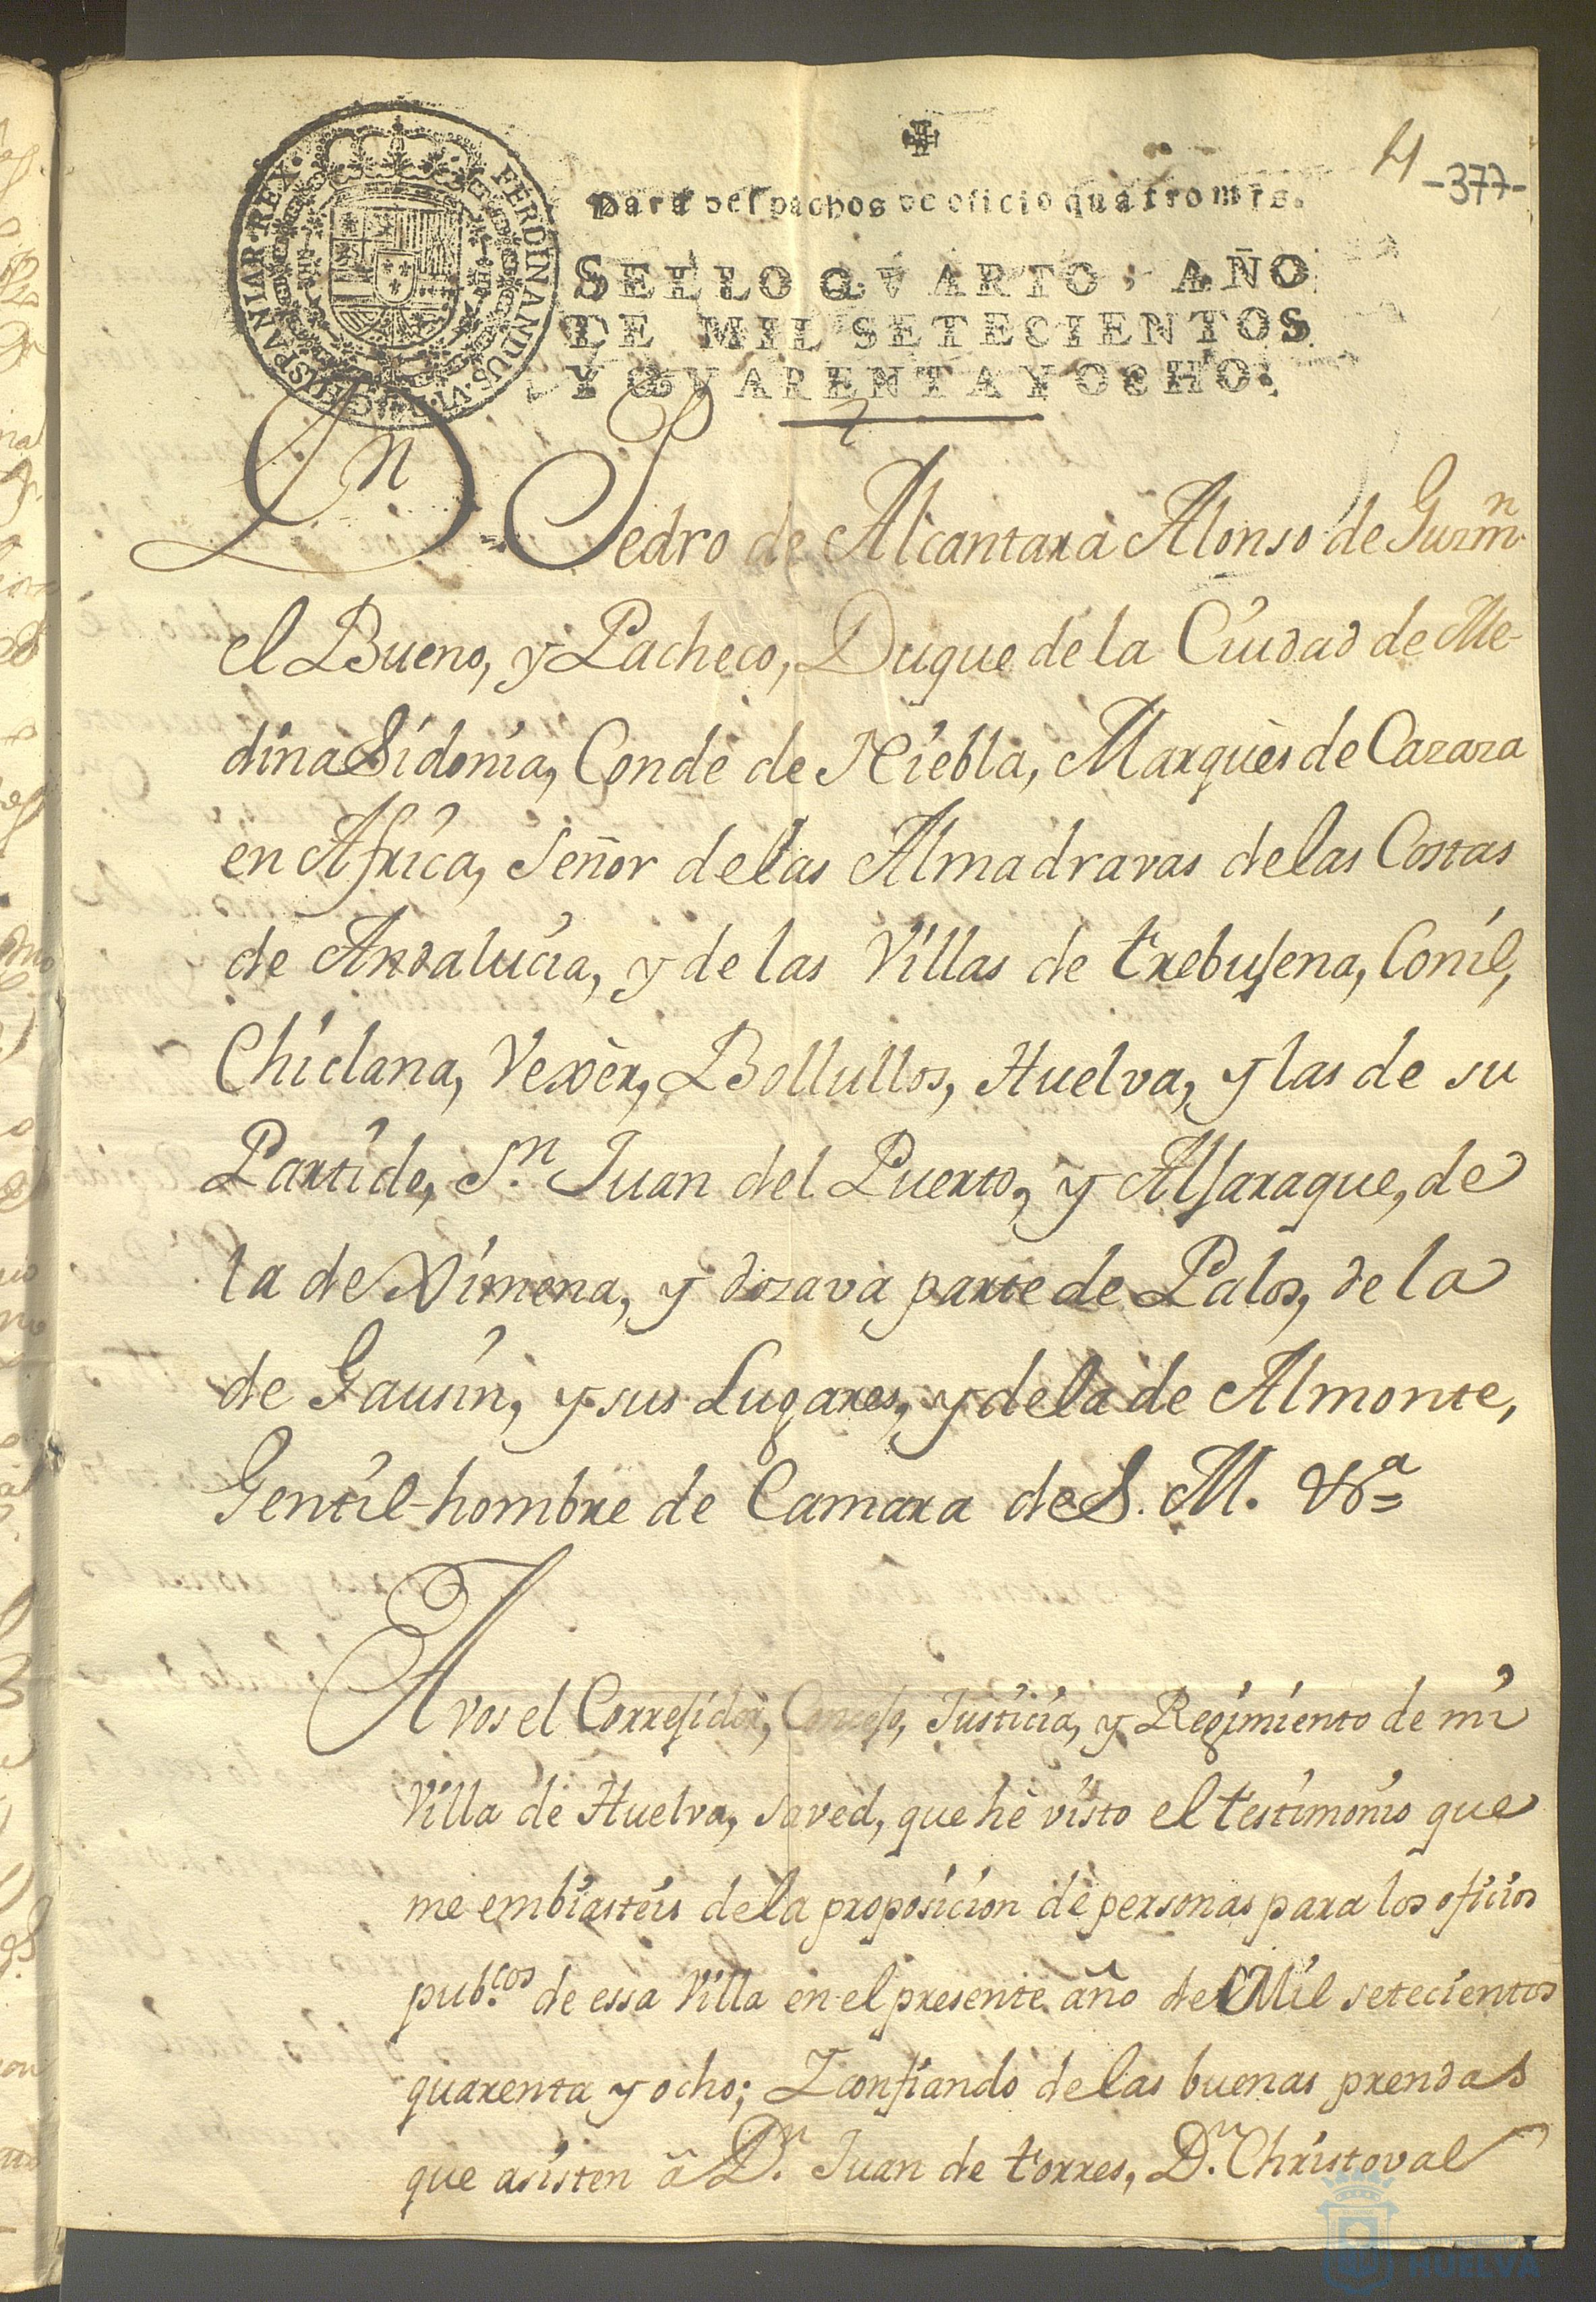 ✠
Para despachos de oficio quatro mrs.
SELLO QVARTO, AÑO
DE MIL SETECIENTOS
Y QVARENTA Y OCHO.
FERDINANDUS·VI·D·G·HISPANIAR·REX·
4
-377-
Dn. Pedro de Alcantara Alonso de Guzmn.
el Bueno, y Pacheco, Duque de la Ciudad de Me-
dina Sidonia, Conde de Niebla, Marquès de Cazaza
en Africa, Señor de las Almadravas de las Costas
de Andalucia, y de las Villas de trebujena, Conil,
Chiclana, Vexèr, Bollullos, Huelva, y las de su
Partido, Sn. Juan del Puerto, y Aljaraque, de
la de Ximena, y dozava parte de Palos, de la
de Gausin, y sus Lugares, y de la de Almonte,
Gentil-hombre de Camara de S. M. &a=
A vos el Correjidor, Concejo, Justicia, y Regimiento de mi
Villa de Huelva, saved, que hè visto el testimonio que
me embiasteis de la proposicion de personas para los oficios
pubcos. de essa Villa en el presente año de Mil setecientos
quarenta y ocho; Y confiando de las buenas prendas
que asisten â Dn. Juan de torres, Dn. Christoval
HUELVA